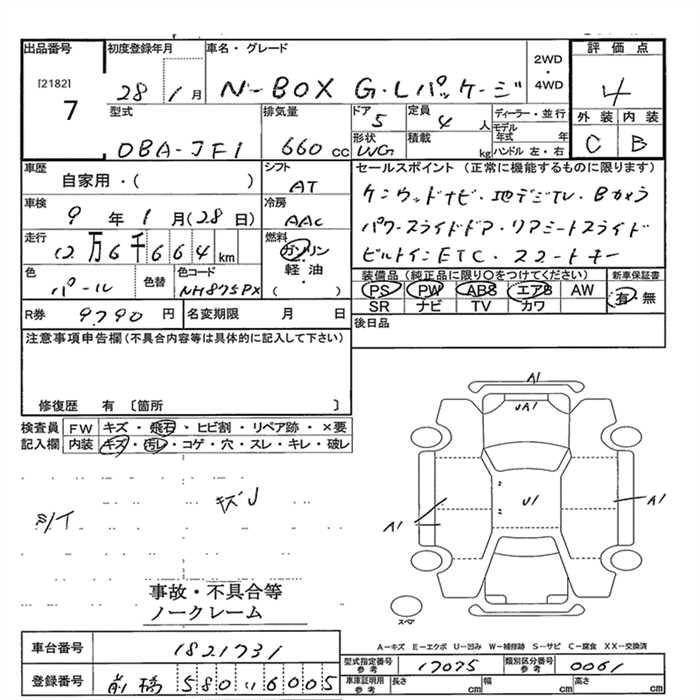 出品番号 初度登録年月 車名・グレード 評価点
[2182] 7 28 1月 N-BOX G・Lパッケージ 2WD・4WD 4
型式 排気量 ドア 5 定員 4人 ディーラー・並行 外装 内装
DBA-JF1 660cc 形状 WG 積載 kg モデル年式 年 ハンドル 左・右 C B
車歴 シフト セールスポイント (正常に機能するものに限ります)
自家用・( ) AT ケンウッドナビ・地デジTV・Bカメラ
車検 9年1月(28日) 冷房 AAC パワースライドドア・リアシートスライド
走行 12万6千664km 燃料 ガソリン 軽油・( ) ビルトインETC・スマートキー
色 パール 色替 色コード NH875PX
装備品(純正品に限り○をつけてください) 新車保証書
PS PW ABS エアB AW 有・無
SR ナビ TV カワ
R券 9790円 名変期限 月 日 後日品
注意事項申告欄(不具合内容等は具体的に記入して下さい)
修復歴 有 〔箇所 〕
検査員 FW キズ・飛石・ヒビ割・リペア跡・×要
記入欄 内装 キズ・汚レ・コゲ・穴・スレ・キレ・破レ
キズJ
A1
UA1
A1 U1 A1
事故・不具合等
ノークレーム
スペア
A-キズ E-エクボ U-凹み W-補修跡 S-サビ C-腐食 XX-交換済
車台番号 1821731
型式指定番号 参考 17075 類別区分番号 参考 0061
登録番号 前橋 580 い 6005
車庫証明用 参考 長さ cm 幅 cm 高さ cm